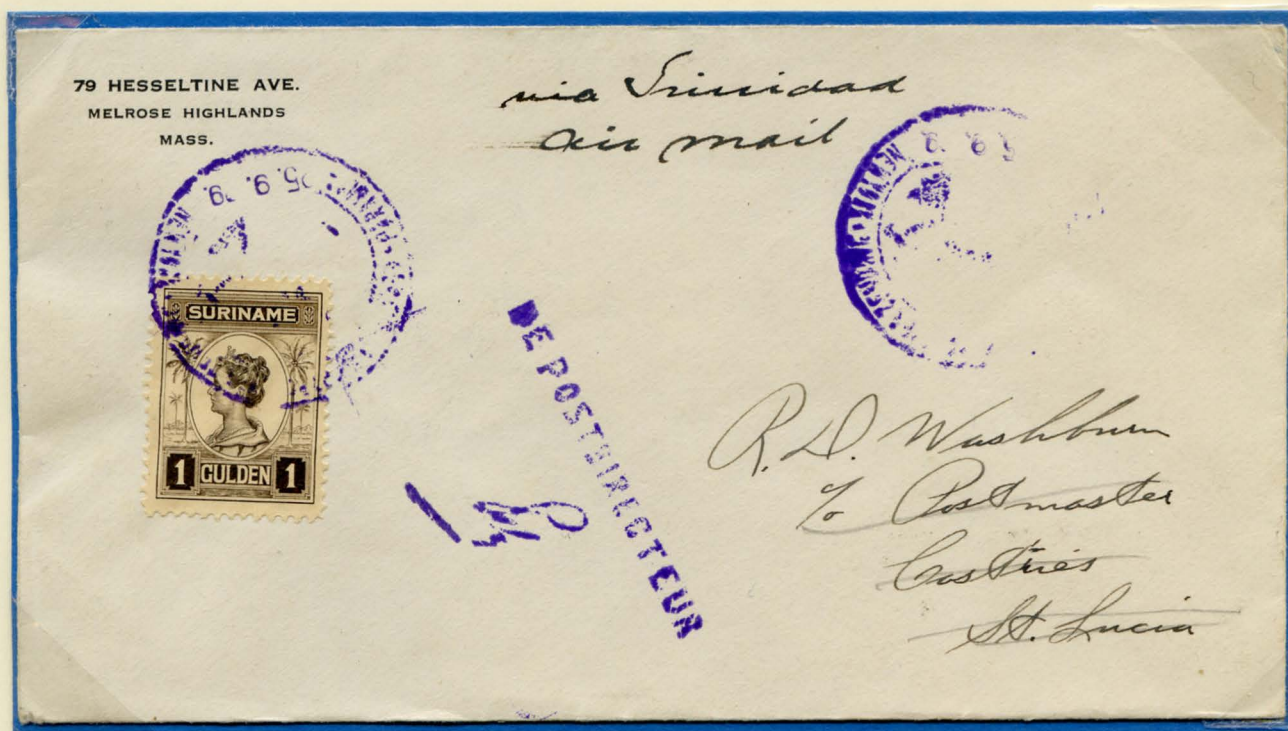 79 HESSELTINE AVE.
MELROSE HIGHLANDS
MASS.
via Trinidad
air mail
25.9.
5.9.
SURINAME
1 GULDEN 1
DE POSTDIRECTEUR
R. D. Washburn
c/o Postmaster
Castries
St. Lucia